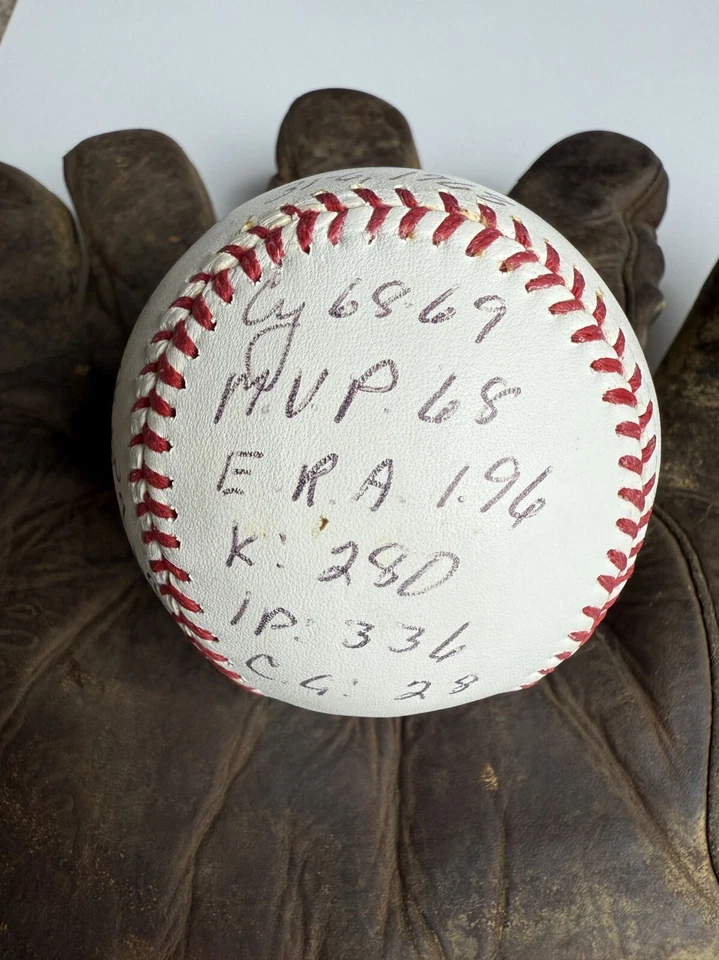 Cy 68-69
M.V.P. 68
E.R.A 1.96
K: 280
IP: 336
C.G: 28